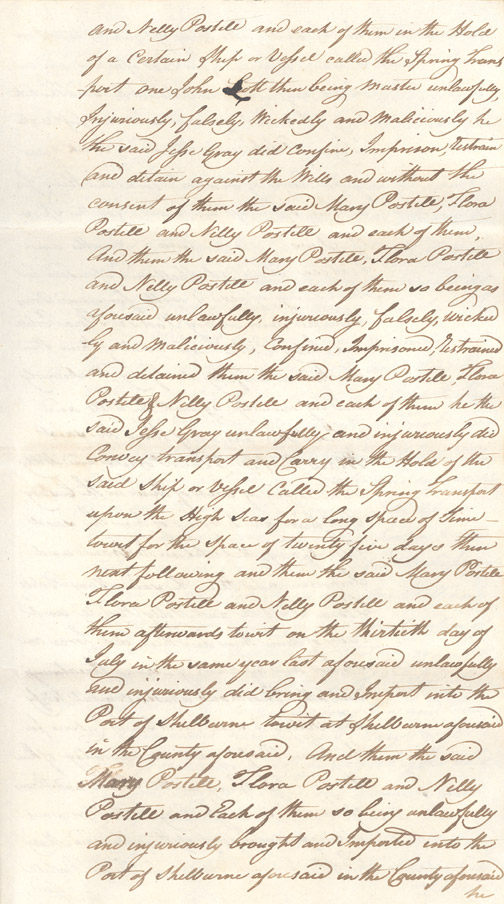 and Nelly Postill and each of them in the Hold
of a Certain Ship or Vessel called the Spring Trans
port one John then being Master unlawfully
Injuriously, falsely, Wickedly and Maliciously he
the said Jesse Gray did Confine, Imprison, restrain
and detain against the Wills and without the
consent of them the said Mary Postill, Flora
Postill and Nelly Postill and each of them,
And them the said Mary Postill, Flora Postill
and Nelly Postill and each of them so being as
aforesaid unlawfully, injuriously, falsely, wicked
ly and Maliciously, Confined, Imprisoned, restrained
and detained them the said Mary Postill, Flora
Postill & Nelly Postill and each of them he the
said Jesse Gray unlawfully and injuriously did
Convey transport and Carry in the Hold of the
said Ship or Vessel Called the Spring Transport
upon the High Seas for a long space of Time
towit for the space of twenty five days then
next following and them the said Mary Postill
Flora Postill and Nelly Postill and each of
them afterwards towit on the thirtieth day of
July in the same year last aforesaid unlawfully
and injuriously did bring and Import into the
Port of Shelburne towit at Shelburne aforesaid
in the County aforesaid, And them the said
Mary Postill, Flora Postill and Nelly
Postill and Each of them so being unlawfully
and injuriously brought and Imported into the
Port of Shelburne aforesaid in the County aforesaid
he